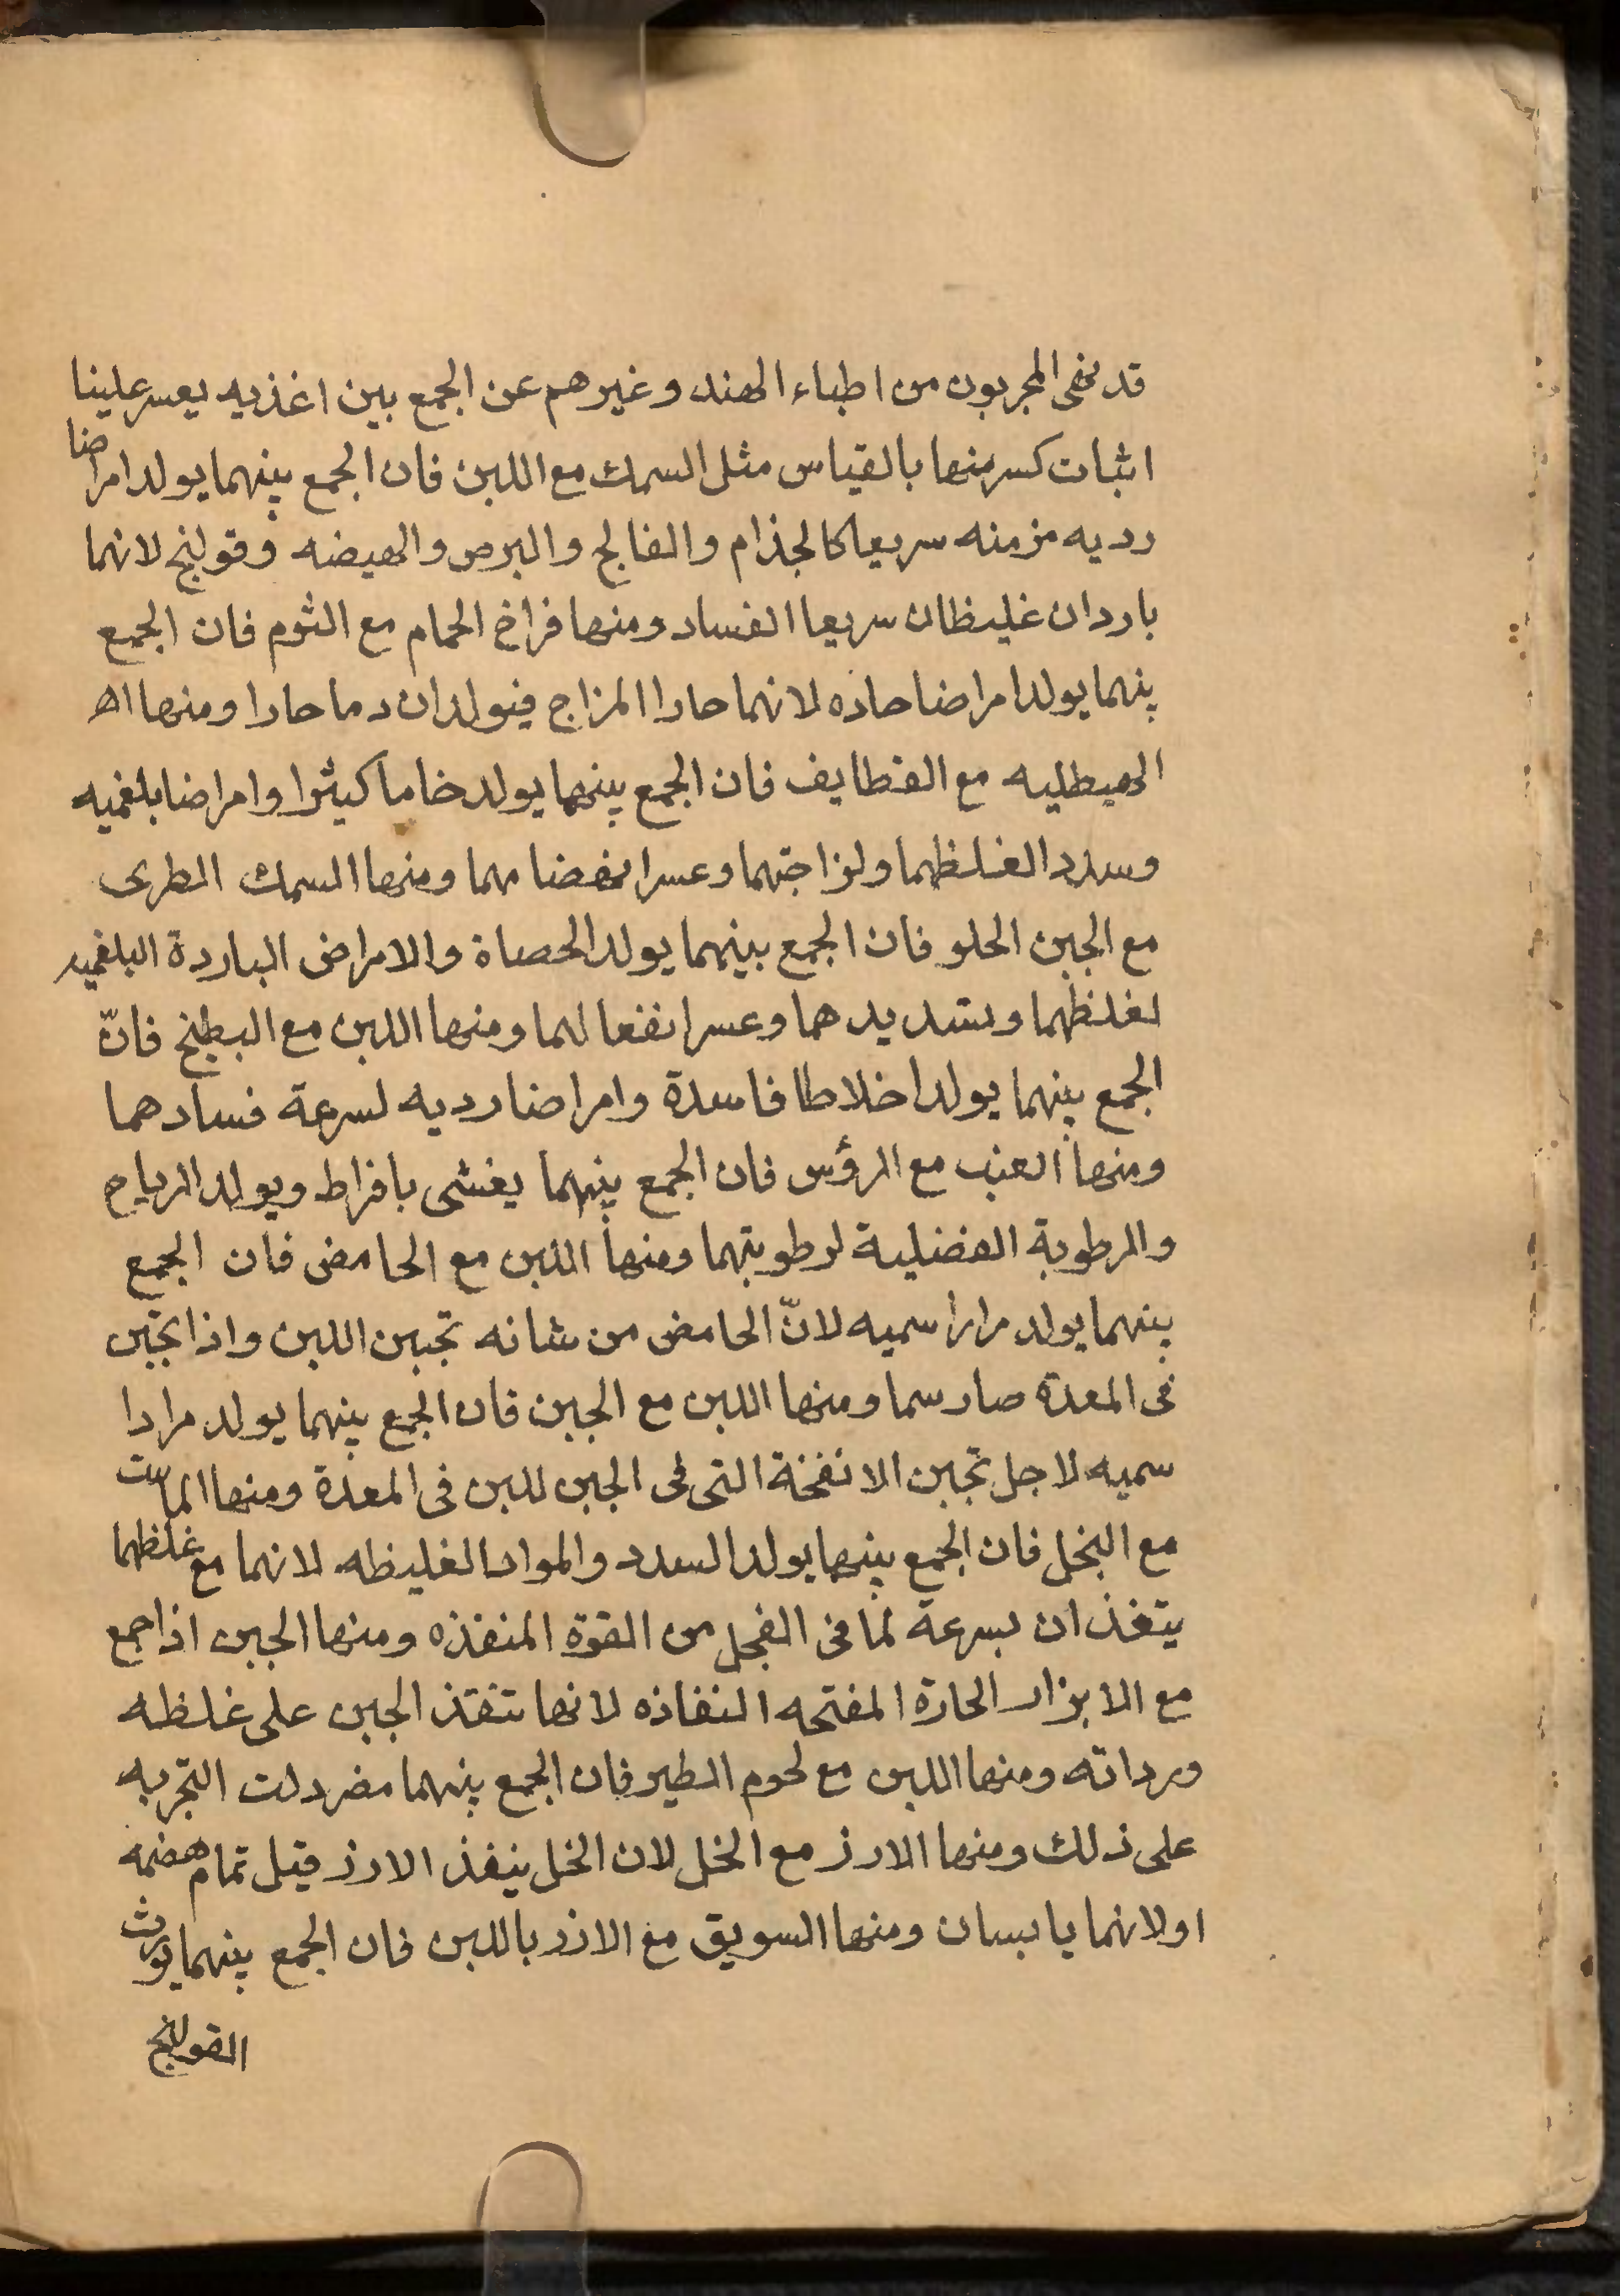 قد نهى المجربون من اطباء الهند وغيرهم عن الجمع بين اغذيه يعسر علينا
اثبات كسر منها بالقياس مثل السمك مع اللبن فان الجمع بينهما يولد امراضا
رديه مزمنه سريعا كالجذام والفالج والبرص والهيضه وقولنج لانهما
باردان غليظان سريعا الفساد ومنها فراخ الحمام مع الثوم فان الجمع
بينهما يولد امراضا حاده لانهما حارا المزاج فيولدان دما حارا ومنها اله
الهيطليه مع القطايف فان الجمع بينهما يولد خاما كثيرا وامراضا بلغميه
وسددا لغلظهما ولزاجتهما وعسر انهضامهما ومنها السمك الطرى
مع الجبن الحلو فان الجمع بينهما يولد الحصاة والامراض الباردة البلغميه
لغلظهما وتسديدهما وعسر انفعالهما ومنها اللبن مع البطيخ فانّ
الجمع بينهما يولد اخلاطا فاسدة وامراضا رديه لسرعة فسادهما
ومنها العنب مع الرؤس فان الجمع بينهما يغشى بافراط ويولد الرياح
والرطوبة الفضلية لرطوبتهما ومنها اللبن مع الحامض فان الجمع
بينهما يولد مرارا سميه لانّ الحامض من شانه تجبين اللبن واذا تجبن
فى المعدة صار سما ومنها اللبن مع الجبن فان الجمع بينهما يولد مرارا
سميه لاجل تجبن الانفخة التى فى الجبن للبن فى المعدة ومنها الماست
مع النخل فان الجمع بينهما يولد السدد والمواد الغليظه لانهما مع غلظهما
يتغذان بسرعة لما فى الفجل من القوة المنفذه ومنها الجبن اذا جمع
مع الابزار الحارة المفتحه النفاذه لانها تنفذ الجبن على غلظه
ورداته ومنها اللبن مع لحوم الطير فان الجمع بينهما مضر دلت التجربه
على ذلك ومنها الارز مع الخل لان الخل ينفذ الارز قبل تمام هضمه
اولانهما يابسان ومنها السويق مع الارز باللبن فان الجمع بينهما يورث
القولنج